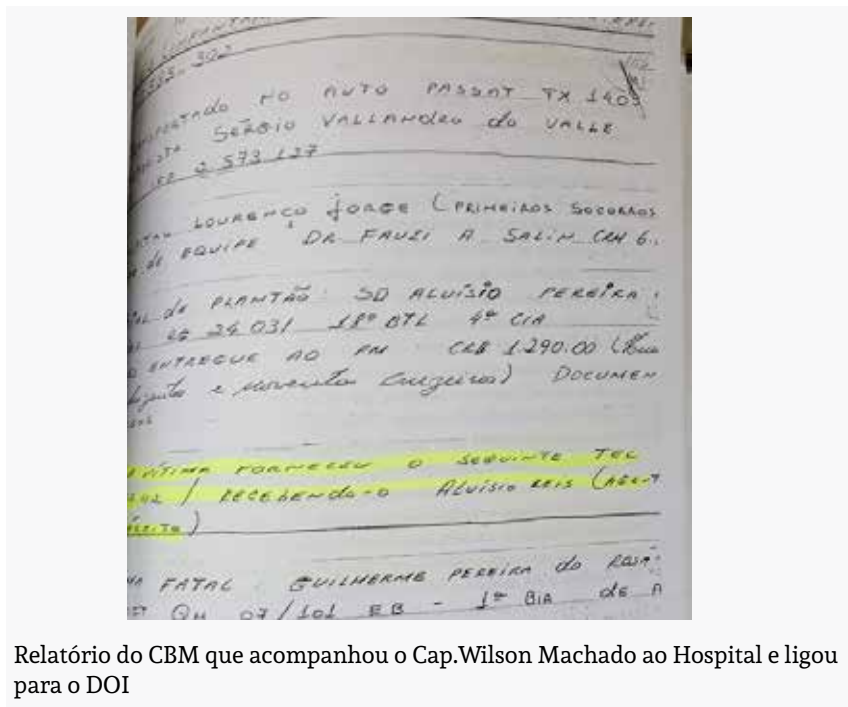 302
NO AUTO PASSAT TX 1405
SÉRGIO VALLANDRO do VALLE
2 573 127
LOURENÇO JORGE (PRIMEIROS SOCORROS
de EQUIPE DR FAUZI A SALIM CRM 6
de PLANTÃO: SD ALUÍSIO PEREIRA
RG 24 031 18º BTL 4ª CIA
ENTREGUE AO PM CR$ 1.290.00 (Hum
e noventa cruzeiros) DOCUMEN
VÍTIMA FORNECEU O SEGUINTE TEL
/ RECEBENDO-O ALUÍSIO REIS (AGENT
FATAL: GUILHERME PEREIRA do ROSÁ
QM 07/101 EB - 1ª BIA de A
Relatório do CBM que acompanhou o Cap.Wilson Machado ao Hospital e ligou
para o DOI